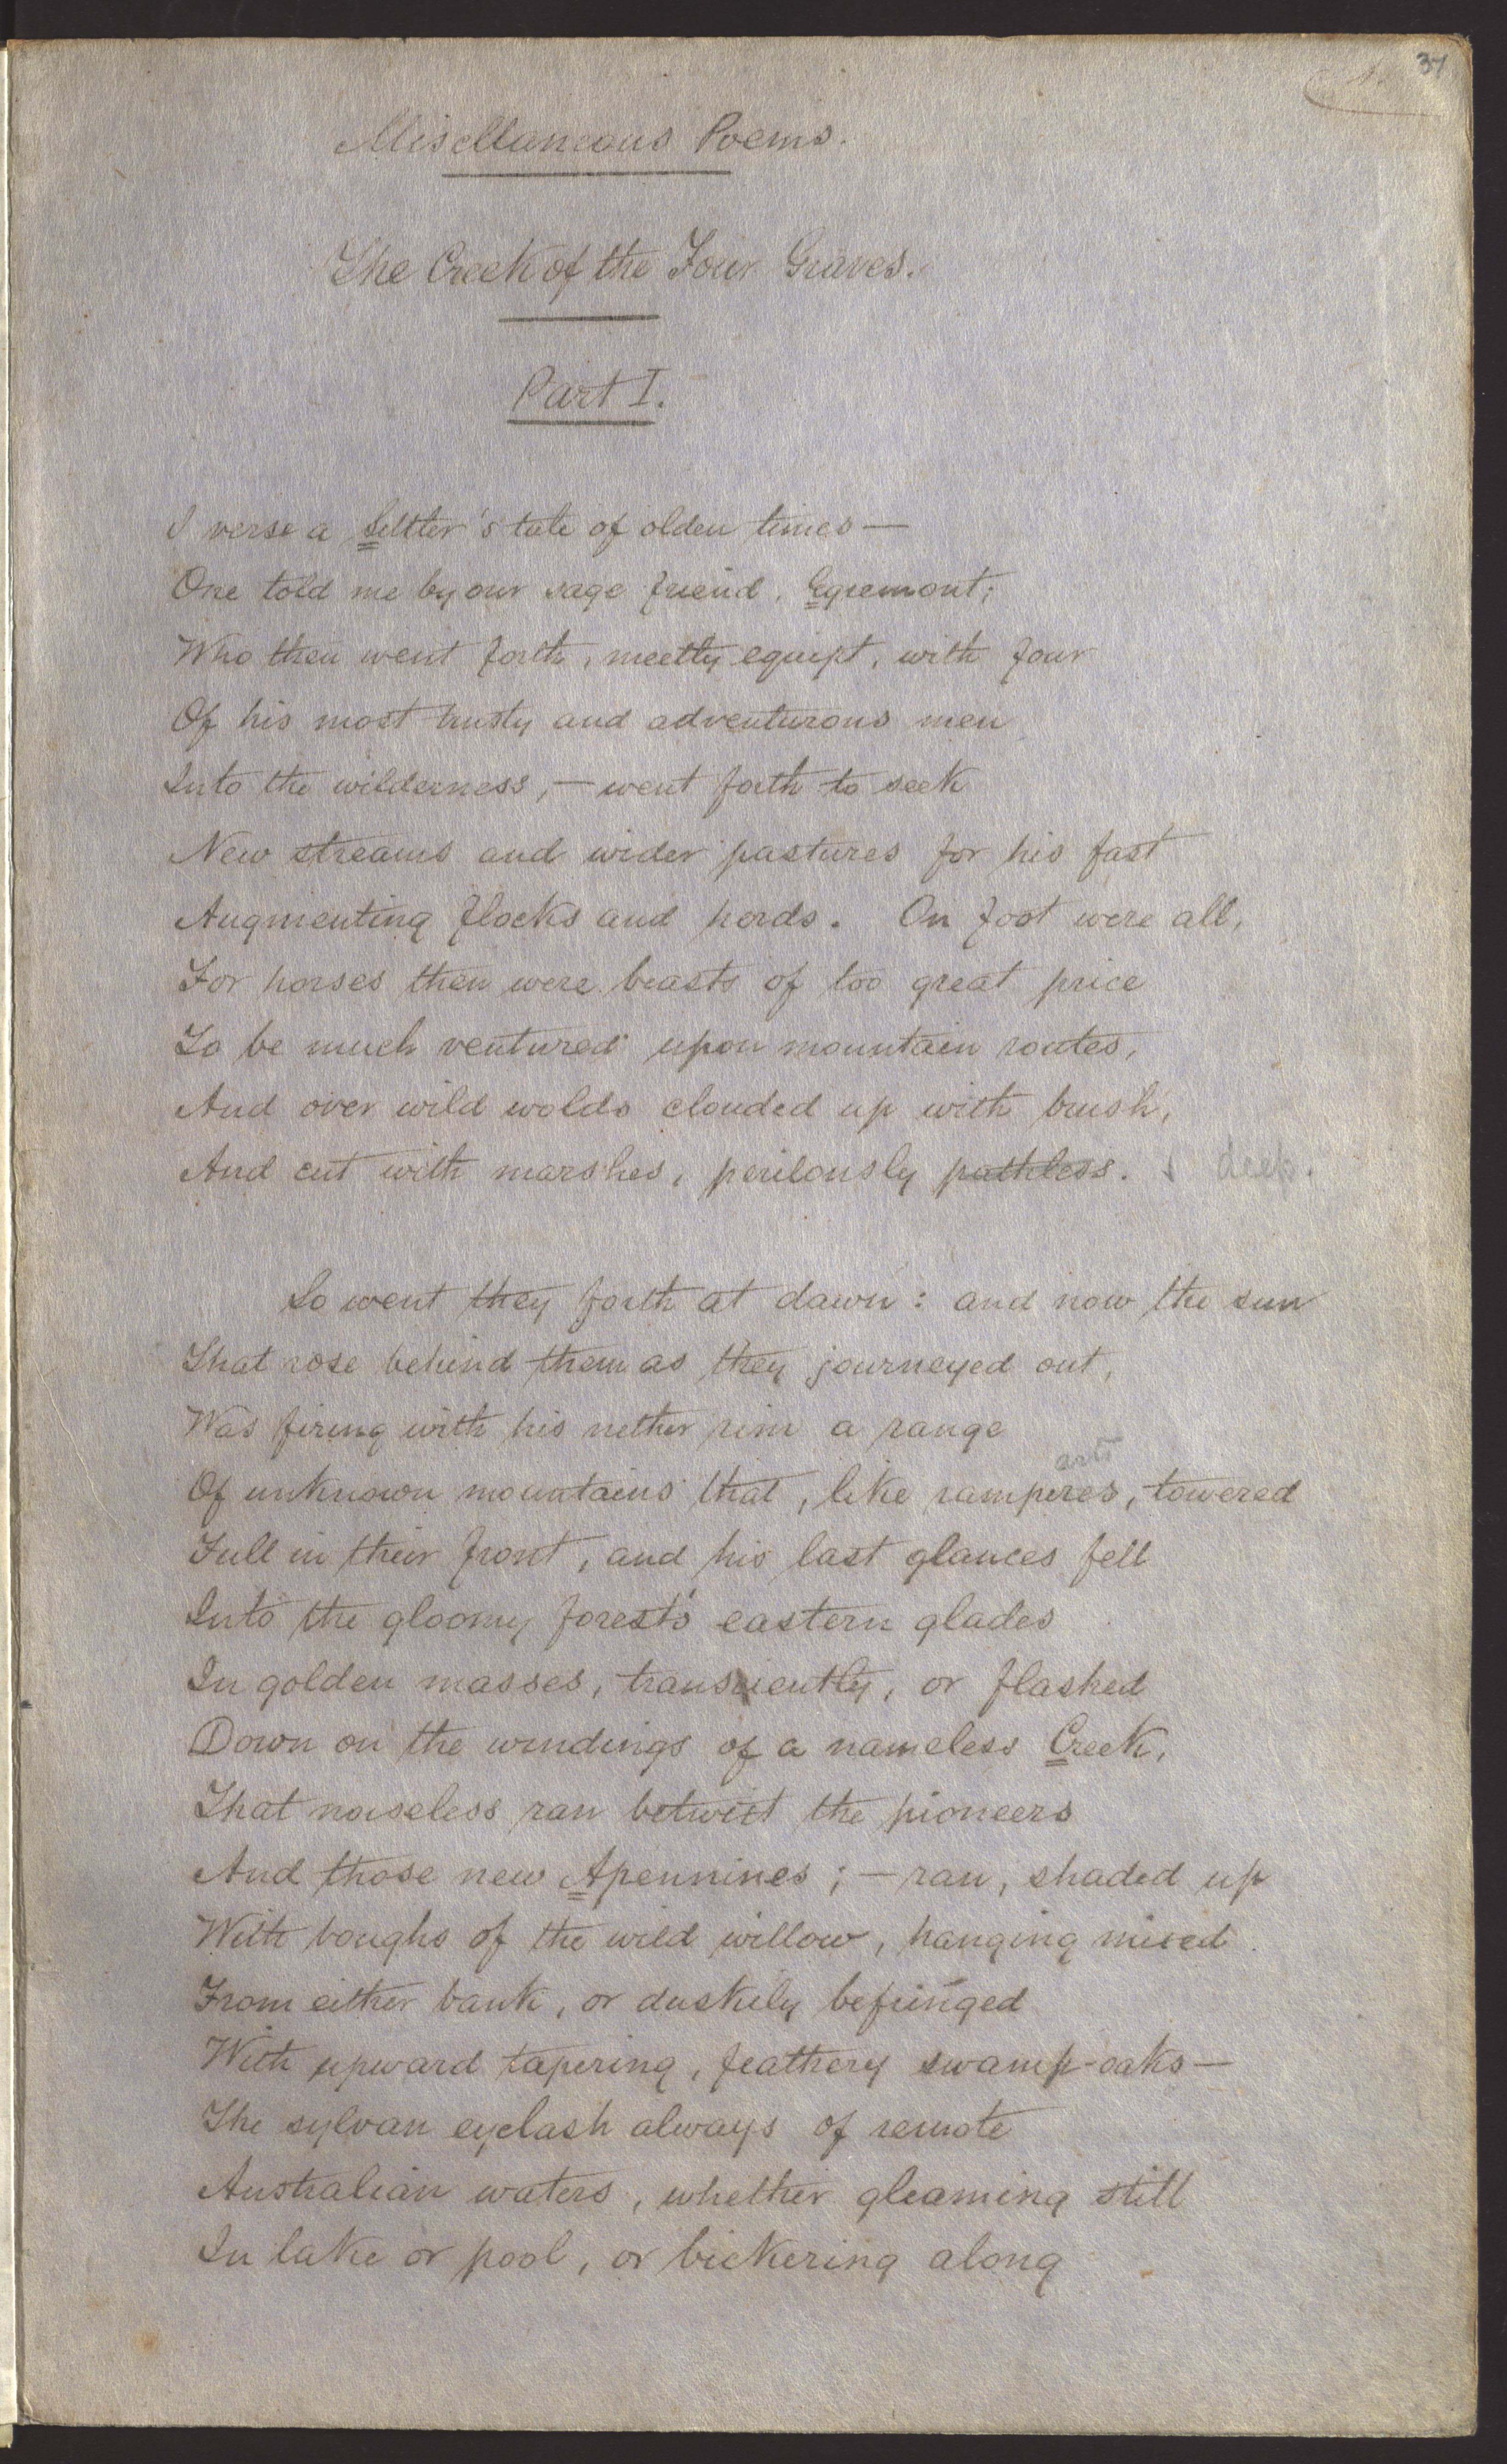 37
Misellaneous Poems.
The Creek of the Four Graves.
Part I.
I verse a Settler's tale of olden times —
One told me by our sage friend, Egremont;
Who then went forth, meetly equipt, with four
Of his most trusty and adventurous men
Into the wilderness, — went forth to seek
New streams and wider pastures for his fast
Augmenting flocks and herds. On foot were all,
For horses then were beasts of too great price
To be much ventured upon mountain routes,
And over wild wolds clouded up with brush,
And cut with marshes, perilously pathless. & deep.
So went they forth at dawn: and now the sun
That rose behind them as they journeyed out,
Was firing with his nether rim a range
arts
Of unknown mountains that, like ramperes, towered
Full in their front, and his last glances fell
Into the gloomy forest's eastern glades
In golden masses, transiently, or flashed
Down on the windings of a nameless Creek,
That noiseless ran betwixt the pioneers
And those new Apennines; — ran, shaded up
With boughs of the wild willow, hanging mixed
From either bank, or duskily befringed
With upward tapering, feathery swamp-oaks —
The sylvan eyelash always of remote
Australian waters, whether gleaming still
In lake or pool, or bickering along